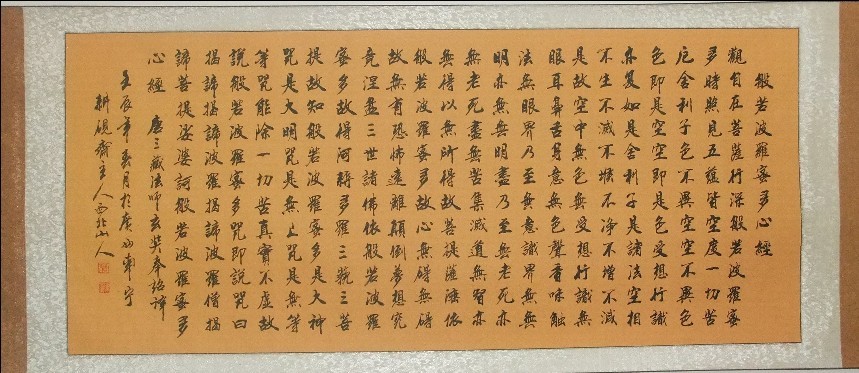 般若波羅蜜多心經
觀自在菩薩行深般若波羅蜜
多時照見五蘊皆空度一切苦
厄舍利子色不異空空不異色
色即是空空即是色受想行識
亦复如是舍利子是諸法空相
不生不滅不垢不淨不增不減
是故空中無色無受想行識無
眼耳鼻舌身意無色聲香味觸
法無眼界乃至無意識界無無
明亦無無明盡乃至無老死亦
無老死盡無苦集滅道無智亦
無得以無所得故菩提薩埵依
般若波羅蜜多故心無碍無碍
故無有恐怖遠離顛倒夢想究
竟涅盤三世諸佛依般若波羅
蜜多故得阿耨多羅三藐三菩
提故知般若波羅蜜多是大神
咒是大明咒是無上咒是無等
等咒能除一切苦真實不虛故
說般若波羅蜜多咒即說咒曰
揭諦揭諦波羅揭諦波羅僧揭
諦菩提娑婆訶般若波羅蜜多
心經 唐三藏法師玄奘奉詔譯
壬辰年春月於廣西南寧
耕硯齋主人西北山人